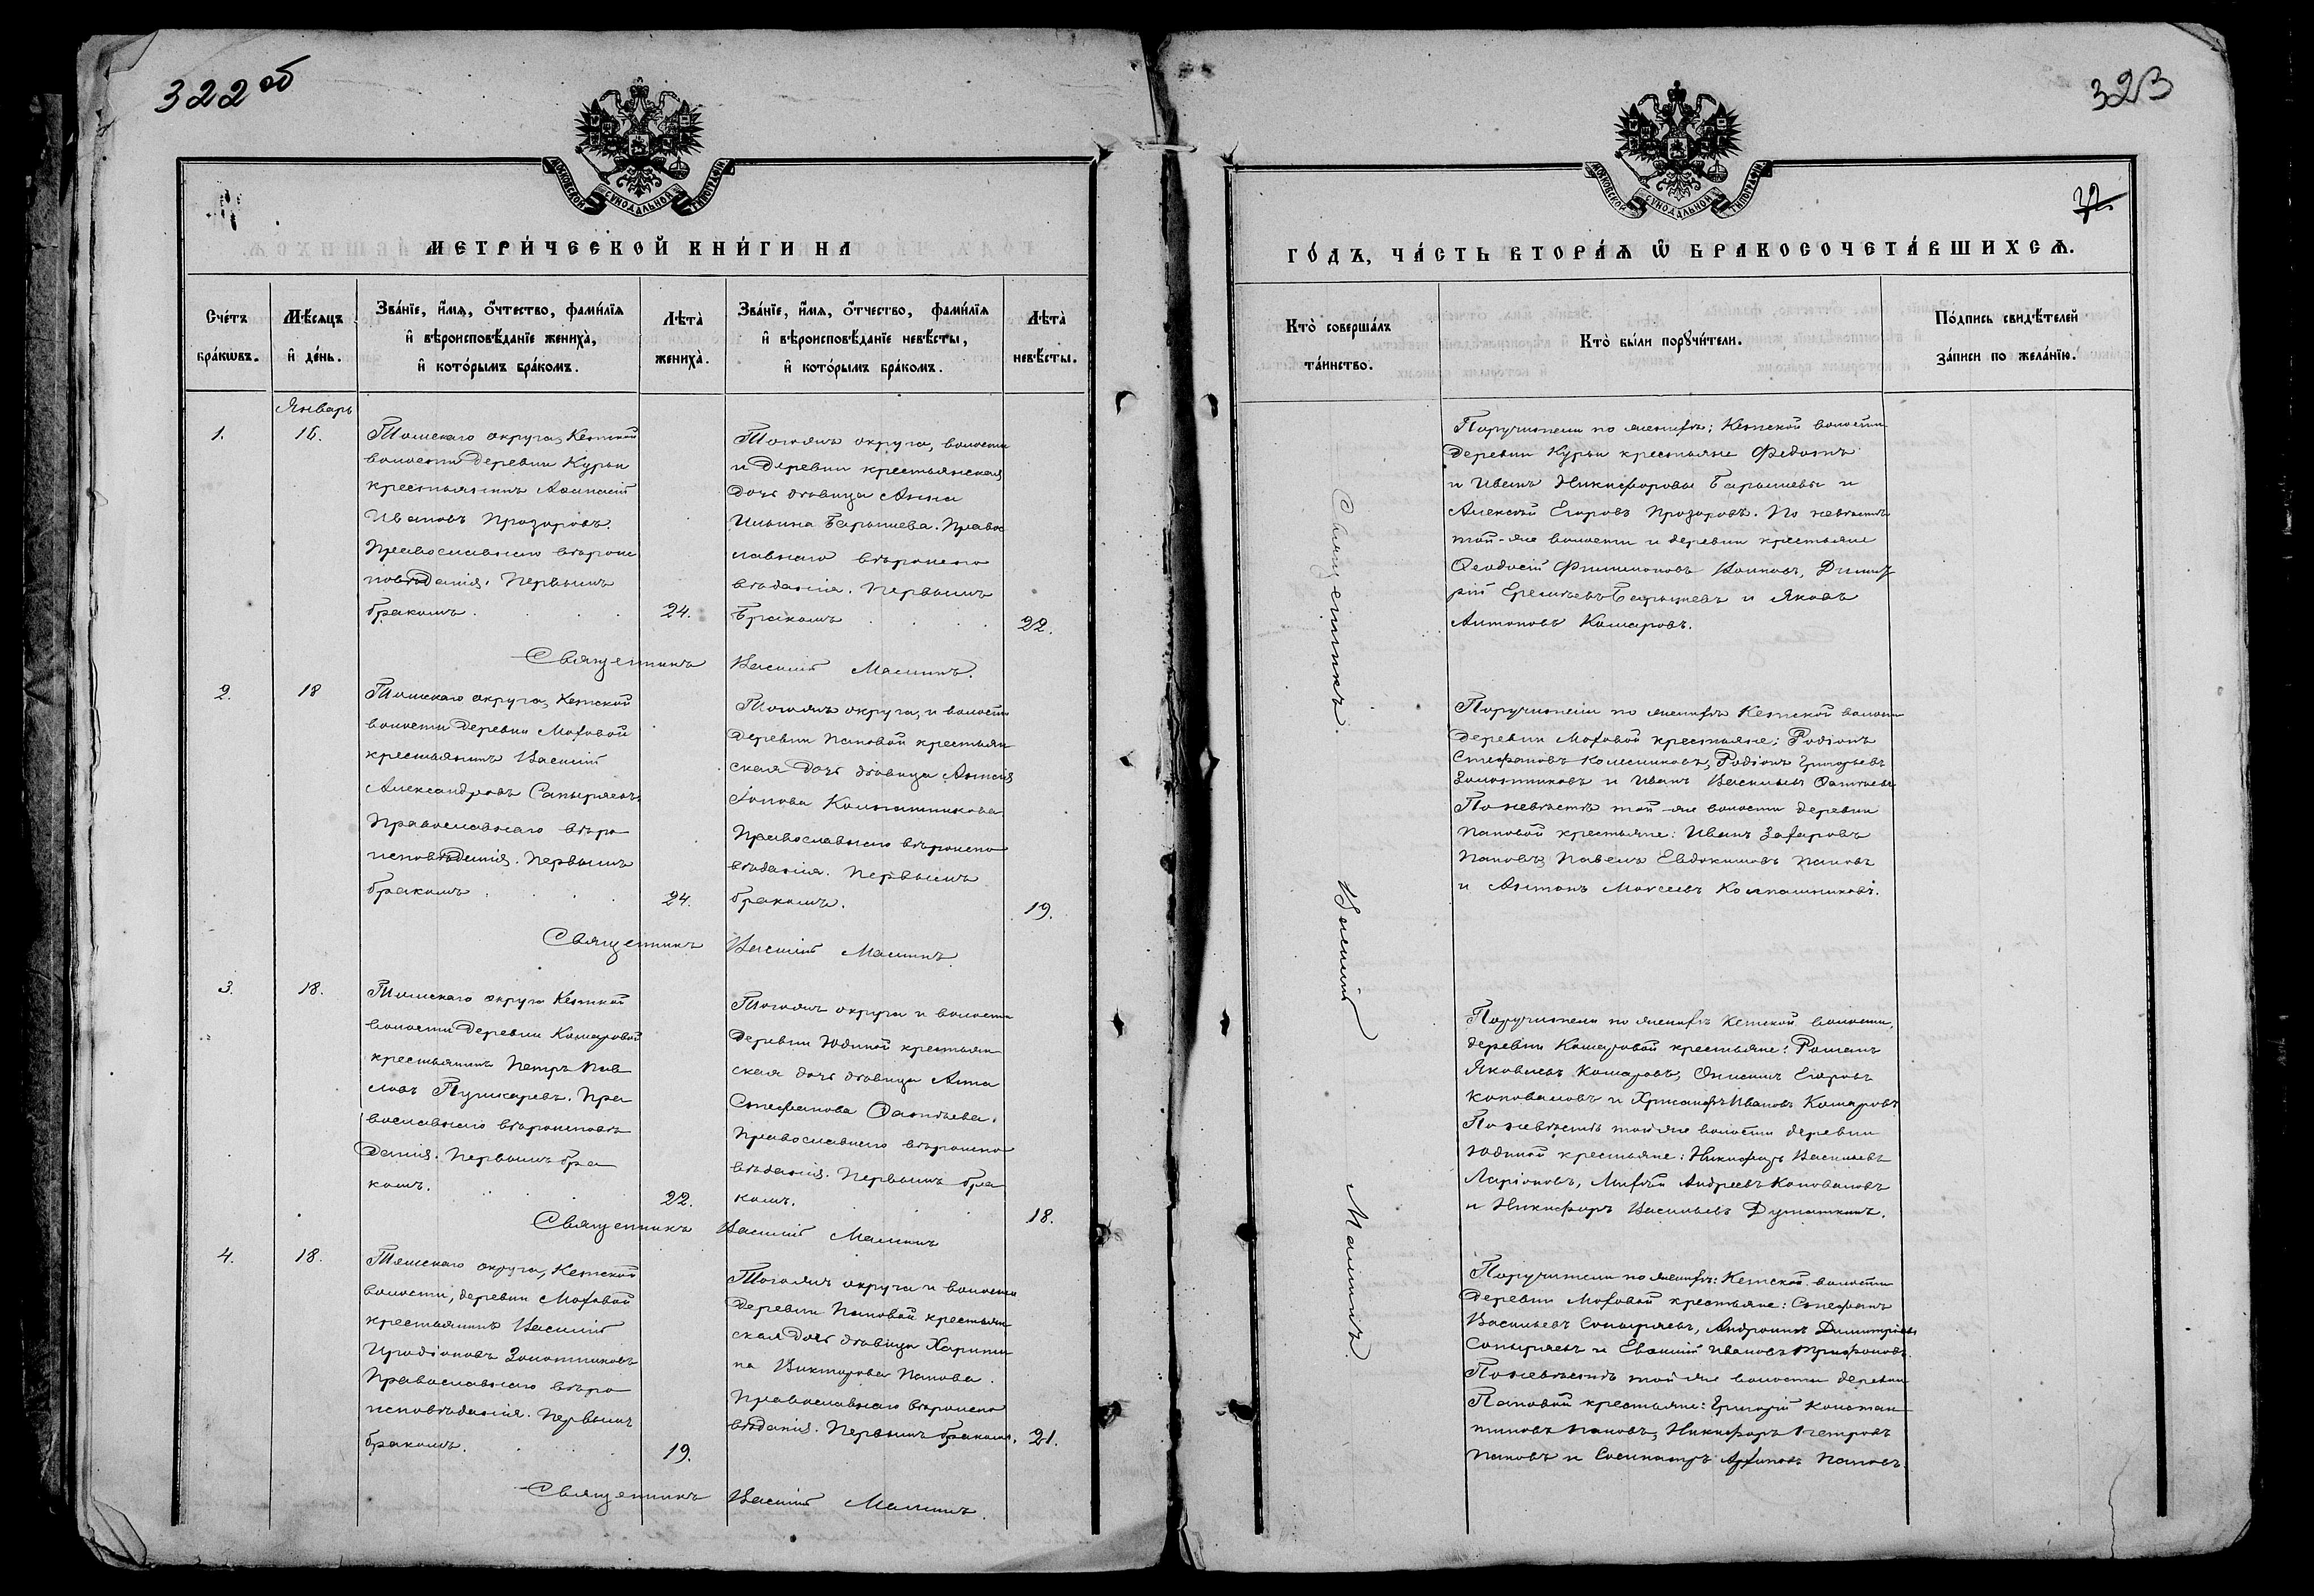 322 об
МОСКОВСКОЙ СУНОДАЛЬНОЙ ТИПОГРАФІИ
МЕТРИ́ЧЕСКОЙ КНИ́ГИ НА
Сче́тъ бра́кѡвъ.
Мѣ́сяцъ и̂ де́нь.
Зва́нїе, и҆́мѧ, о҆́тчество, фами́лїѧ
и҆ вѣроисповѣ́данїе жениха̀,
и҆ кото́рымъ бра́комъ.
Лѣта̀ жениха̀.
Зва́нїе, и҆́мѧ, о҆́тчество, фами́лїѧ
и҆ вѣроисповѣ́данїе невѣ́сты,
и҆ кото́рымъ бра́комъ.
Лѣта̀ невѣ́сты.
Январь
1.
16.
Томскаго округа, Кетской
волости деревни Курьи
крестьянинъ Афанасій
Ивановъ Прозоровъ.
Православнаго вѣроис
повѣданія. Первымъ
бракомъ.
24.
Тогожъ округа, волости
и деревни крестьянская
дочь дѣвица Анна
Ильина Барышева. Правос
лавнаго вѣроиспо
вѣданія. Первымъ
бракомъ
22.
Священникъ Василій Малинъ.
2.
18
Томскаго округа, Кетской
волости деревни Моховой
крестьянинъ Василій
Александровъ Сапыряевъ
Православнаго вѣро
исповѣданія. Первымъ
бракомъ
24.
Тогожъ округа, и волости
деревни Пановой крестьян
ская дочь дѣвица Анисія
Іонова Колпашникова
Православнаго вѣроиспо
вѣданія. Первымъ
бракомъ.
19.
Священникъ Василій Малинъ
3.
18.
Томскаго округа Кетской
волости деревни Комаровой
крестьянинъ Петръ Пав
ловъ Пушкаревъ. Пра
вославнаго вѣроисповѣ
данія. Первымъ бра
комъ.
22.
Тогожъ округа и волости
деревни Юдиной крестьян
ская дочь дѣвица Анна
Стефанова Фатѣева.
Православнаго вѣроиспо
вѣданія. Первымъ бра
комъ.
18.
Священникъ Василій Малинъ
4.
18.
Томскаго округа, Кетской
волости, деревни Моховой
крестьянинъ Василій
Иродіоновъ Золотниковъ
Православнаго вѣро
исповѣданія. Первымъ
бракомъ.
19.
Тогожъ округа и волости
деревни Пановой крестьян
ская дочь дѣвица Харити
на Викторова Панова.
Православнаго вѣроиспо
вѣданія. Первымъ бракомъ.
21.
Священникъ Василій Малинъ.
323
32.
МОСКОВСКОЙ СУНОДАЛЬНОЙ ТИПОГРАФІИ
ГО́ДЪ, ЧА́СТЬ ВТОРА́Ѧ Ѿ БРАКОСОЧЕТА́ВШИХСѦ.
Кто̀ соверша́лъ та́инство.
Кто̀ бы́ли порꙋчи́тели.
По́дпись свидѣ́телей
за́писи по жела́нїю.
Священникъ Василій Малинъ.
Поручители по женихѣ: Кетской волости
деревни Курьи крестьяне Федотъ
и Иванъ Никифоровы Барышевы и
Алексѣй Егоровъ Прозоровъ. По невѣстѣ
той-же волости и деревни крестьяне
Феодосій Филимоновъ Волковъ, Димит
рій Еремѣевъ Барышевъ и Яковъ
Антоновъ Комаровъ.
Поручители по женихѣ Кетской волости
деревни Моховой крестьяне: Родіонъ
Стефановъ Колесниковъ, Родіонъ Григорьевъ
Золотниковъ и Иванъ Васильевъ Фатѣевъ
По невѣстѣ той-же волости деревни
Пановой крестьяне: Иванъ Захаровъ
Пановъ, Павелъ Евдокимовъ Пановъ
и Антонъ Моисеевъ Колпашниковъ.
Поручители по женихѣ Кетской волости,
деревни Комаровой крестьяне: Романъ
Яковлевъ Комаровъ, Онисимъ Егоровъ
Коноваловъ и Хрисанфъ Ивановъ Комаровъ
По невѣстѣ той же волости деревни
Юдиной крестьяне: Никифоръ Васильевъ
Ларіоновъ, Михѣй Андреевъ Коноваловъ
и Никифоръ Васильевъ Думаткинъ.
Поручители по женихѣ: Кетской волости
деревни Моховой крестьяне: Стефанъ
Васильевъ Сопыряевъ, Андроникъ Димитріевъ
Сопыряевъ и Евфимій Ивановъ Трифоновъ.
По невѣстѣ той же волости деревни
Пановой крестьяне: Григорій Констан
тиновъ Пановъ, Никифоръ Петровъ
Пановъ и Сосипатръ Архиповъ Пановъ.